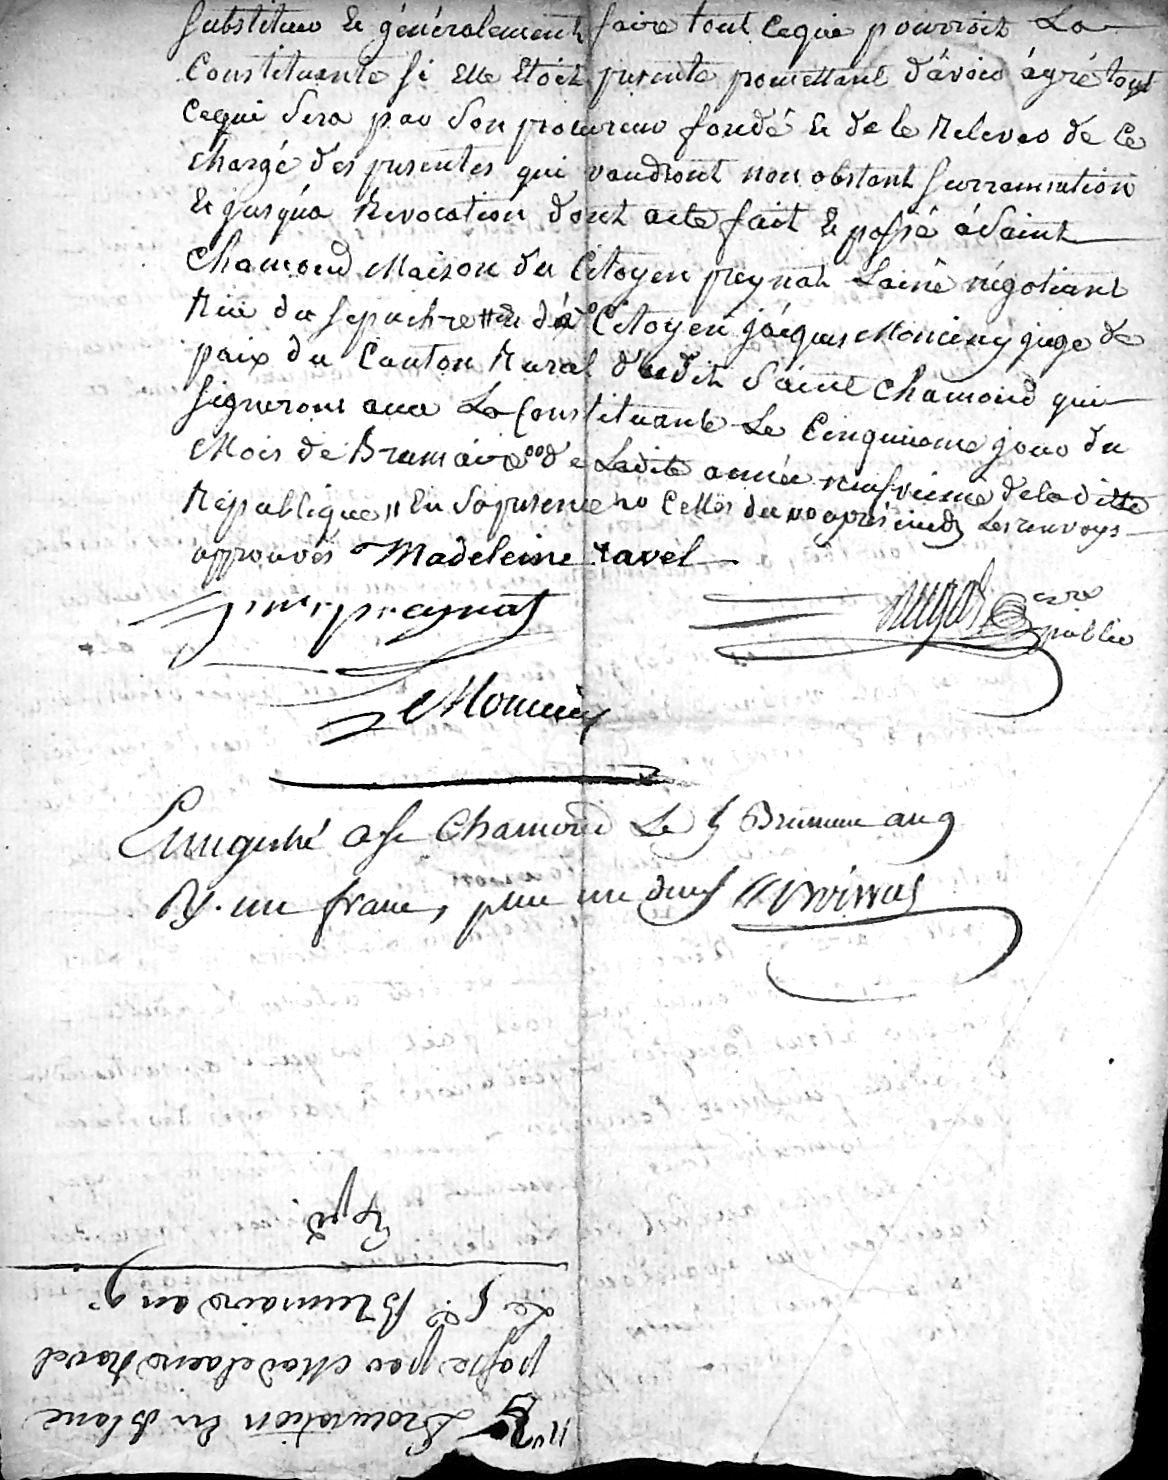 Substituer Et généralement faire tout ceque pourroit La
Constituante si Elle Etoit presente promettant d'avoir ágré tout
cequi Sera par Son procureur fondé Et de le Relever de Ce
chargé des presentes qui vaudront non obstant surrannation
Et jusqúa Revocation dont acte fait Et passé áSaint
Chamond Maison du Citoyen preynat Lainé négotiant
Rue du sepulchre Citoyen jácques Monciny juge de
paix du Canton Rural dudit Saint Chamond qui
signeront avec La Constituante Le Cinquieme jour du
Mois de Brumaire de Ladite année neufvieme dela ditte
République // En Sa presence Celles du Les renvoys
approuvés Madeleine ravel
preynat
public
Monciny
Enregistré a St Chamond Le 5 Brumaire an 9
R. un franc, pour un dixe
Exp.d
Le 5.e Brumaire an 9.
passé par Madelaine Ravel
Procuration En Blanc